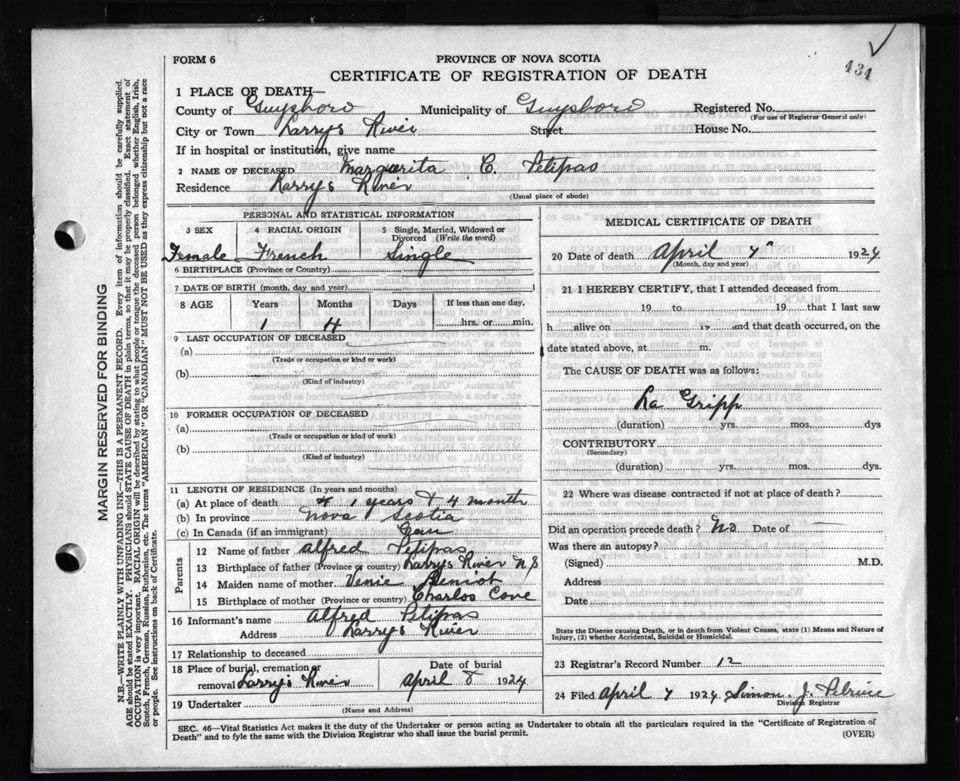 434
FORM 6
PROVINCE OF NOVA SCOTIA
CERTIFICATE OF REGISTRATION OF DEATH
1 PLACE OF DEATH—
County of Guysboro Municipality of Guysboro Registered No.
(For use of Registrar General only)
City or Town Larrys River Street House No.
If in hospital or institution, give name
2 NAME OF DECEASED Marguerita C. Petipas
Residence Larrys River
(Usual place of abode)
PERSONAL AND STATISTICAL INFORMATION
3 SEX 4 RACIAL ORIGIN 5 Single, Married, Widowed or Divorced (Write the word)
Female French Single
6 BIRTHPLACE (Province or Country)
7 DATE OF BIRTH (month, day and year)
8 AGE Years Months Days If less than one day,
1 4 hrs. or min.
9 LAST OCCUPATION OF DECEASED
(a)
(Trade or occupation or kind or work)
(b)
(Kind of industry)
10 FORMER OCCUPATION OF DECEASED
(a)
(Trade or occupation or kind of work)
(b)
(Kind of industry)
11 LENGTH OF RESIDENCE (In years and months)
(a) At place of death 1 years & 4 month
(b) In province Nova Scotia
(c) In Canada (if an immigrant) Can
Parents
12 Name of father Alfred Petipas
13 Birthplace of father (Province or Country) Larrys River N S
14 Maiden name of mother Beniot
15 Birthplace of mother (Province or Country) Charlos Cove
16 Informant's name Alfred Petipas
Address Larrys River
17 Relationship to deceased
18 Place of burial, cremation or removal Larry's River
Date of burial
April 8 1924
19 Undertaker
(Name and Address)
MEDICAL CERTIFICATE OF DEATH
20 Date of death April 7" 1924
(Month, day and year)
21 I HEREBY CERTIFY, that I attended deceased from
19 to 19 that I last saw
h alive on 19 and that death occurred, on the
date stated above, at m.
The CAUSE OF DEATH was as follows:
La Gripp
(duration) yrs. mos. dys
CONTRIBUTORY
(Secondary)
(duration) yrs. mos. dys.
22 Where was disease contracted if not at place of death?
Did an operation precede death? No Date of
Was there an autopsy?
(Signed) M.D.
Address
Date
State the Disease causing Death, or in death from Violent Causes, state (1) Means and Nature of
Injury, (2) whether Accidental, Suicidal or Homicidal.
23 Registrar's Record Number 12
24 Filed April 7 1924 Simon J. Pelrine
Division Registrar
SEC. 46—Vital Statistics Act makes it the duty of the Undertaker or person acting as Undertaker to obtain all the particulars required in the "Certificate of Registration of
Death" and to fyle the same with the Division Registrar who shall issue the burial permit.
(OVER)
MARGIN RESERVED FOR BINDING
N.B.—WRITE PLAINLY WITH UNFADING INK—THIS IS A PERMANENT RECORD. Every item of information should be carefully supplied.
AGE should be stated EXACTLY. PHYSICIANS should STATE CAUSE OF DEATH in plain terms, so that it may be properly classified. Exact statement of
OCCUPATION is very important. RACIAL ORIGIN will be described by stating to what people or tongue the deceased person belonged whether English, Irish,
Scotch, French, German, Russian, Ruthenian, etc. The terms "AMERICAN" OR "CANADIAN" MUST NOT BE USED as they express citizenship but not a race
or people. See instructions on back of Certificate.